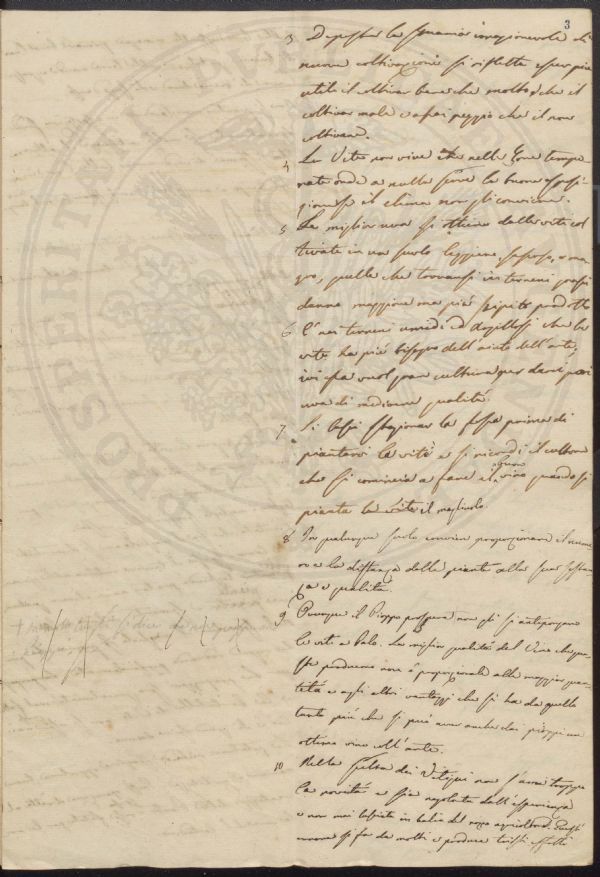 3
3 Deposta la smania irragionevole di
nuove coltivazioni si rifletta esser più
utile il coltivar bene che molto, e che il
coltivar male è assai peggio che il non
coltivare.
4 La Vite non vive che nelle Zone tempe-
rate onde a nulla serve la buona esposi-
zione se il clima non gli conviene.
5 La miglior uva si ottiene dalle viti col
tivate in un suolo leggiero, sassoso, o ma-
gro, quelle che trovansi in terreni grassi
danno maggiore ma più scipito prodotto
6 È nei terreni umidi ed argillosi che la
vite ha più bisogno dell'aiuto dell'arte,
ivi essa vuol gran cultura per dare poi
uva di mediocre qualità.
7 Si lasci stagionar la fossa prima di
piantarvi la vite e si ricordi il coltore
che si comincia a fare il buon vino quando si
pianta la vite il magliuolo.
8 In qualunque suolo convien proporzionare il nume-
ro e la distanza delle piante alla sua sostan-
za e qualità.
9 Ovunque il Pioppo prospera non gli si antepongano
le viti a Palo. La miglior qualità del Vino che que-
ste producono non è proporzionale alla maggior quan-
tità e agli altri vantaggi che si ha da quello
tanto più che si può aver anche dai pioppi un
ottimo vino coll'arte.
10 Nella scelta dei Vitigni non s'ami troppo
la novità e sia regolata dall'esperienza
e non mai lasciata in balia del rozzo agricoltore. Questi
errore si fa da molti e produce tristi effetti